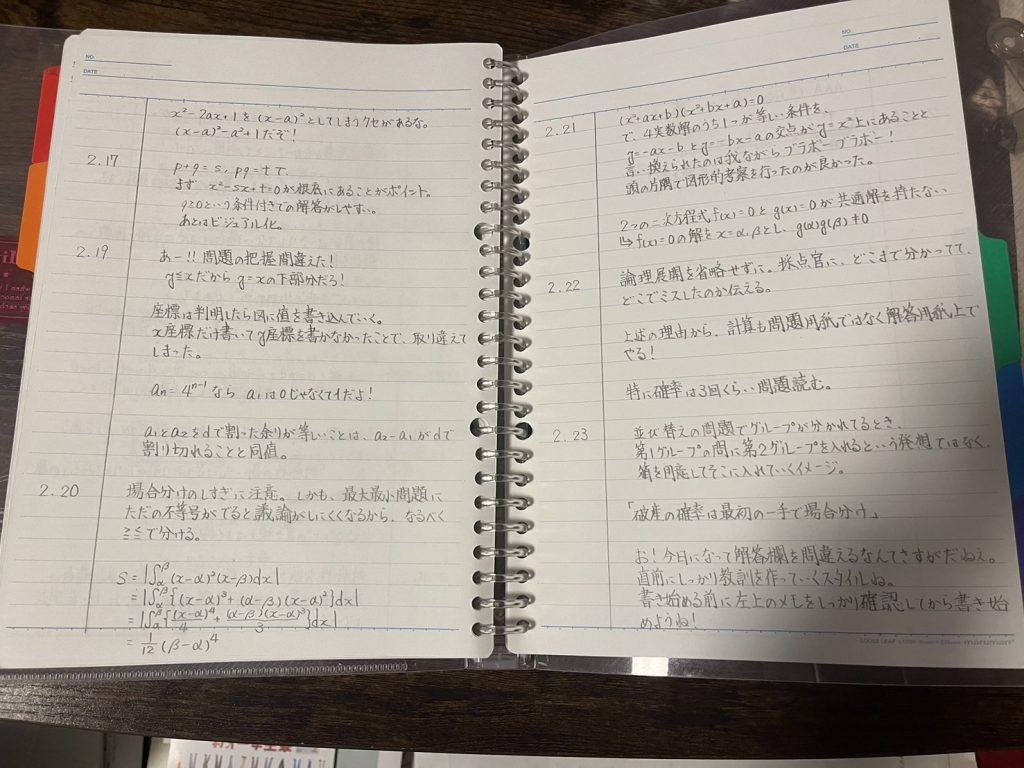 NO.
DATE
x²-2ax+1を(x-a)²としてしまうクセがあるな。
(x-a)²-a²+1だぞ!
2.17
p+q=s, pq=tで、
まず x²-sx+t=0が根底にあることがポイント。
q≧0という条件付きでの解答がしやすい。
あとはビジュアル化。
2.19
あー!!問題の把握間違えた!
y≦xだから y=xの下部分だろ!
座標は判明したら図に値を書き込んでいく。
x座標だけ書いてy座標を書かなかったことで、取り違えて
しまった。
an=4^(n-1) なら a₁は0じゃなくて1だよ!
a₁とa₂をdで割った余りが等しいことは、a₂-a₁がdで
割り切れることと同値。
2.20
場合分けのしすぎに注意。しかも、最大最小問題に
ただの不等号がでると議論がしにくくなるから、なるべく
≧≦で分ける。
S=|∫α^β (x-α)²(x-β)dx|
=|∫α^β{(x-α)³+(α-β)(x-α)²}dx|
=|∫α^β{(x-α)⁴/4+(α-β)(x-α)³/3}dx|
=1/12(β-α)⁴
NO.
DATE
2.21
(x²+ax+b)(x²+bx+a)=0
で、4実数解のうち1つが等しい条件を、
y=-ax-bとy=-bx-aの交点がy=x²上にあることと
言い換えられたのは我ながらブラボーブラボー!
頭の片隅で図形的考察を行ったのが良かった。
2つの二次方程式f(x)=0とg(x)=0が共通解を持たない
↳f(x)=0の解をx=α,βとし、g(α)g(β)≠0
2.22
論理展開を省略せずに。採点官に、どこまで分かってて、
どこでミスしたのか伝える。
上述の理由から、計算も問題用紙ではなく解答用紙上で
やる!
特に確率は3回くらい問題読む。
2.23
並び替えの問題でグループが分かれてるとき、
第1グループの間に第2グループを入れるという発想ではなく、
箱を用意してそこに入れていくイメージ。
「破産の確率は最初の一手で場合分け」
お!今日になって解答欄を間違えるなんてさすがだねぇ。
直前にしっかり教訓を作っていくスタイルね。
書き始める前に左上のメモをしっかり確認してから書き始
めようね!
LOOSE LEAF
maruman